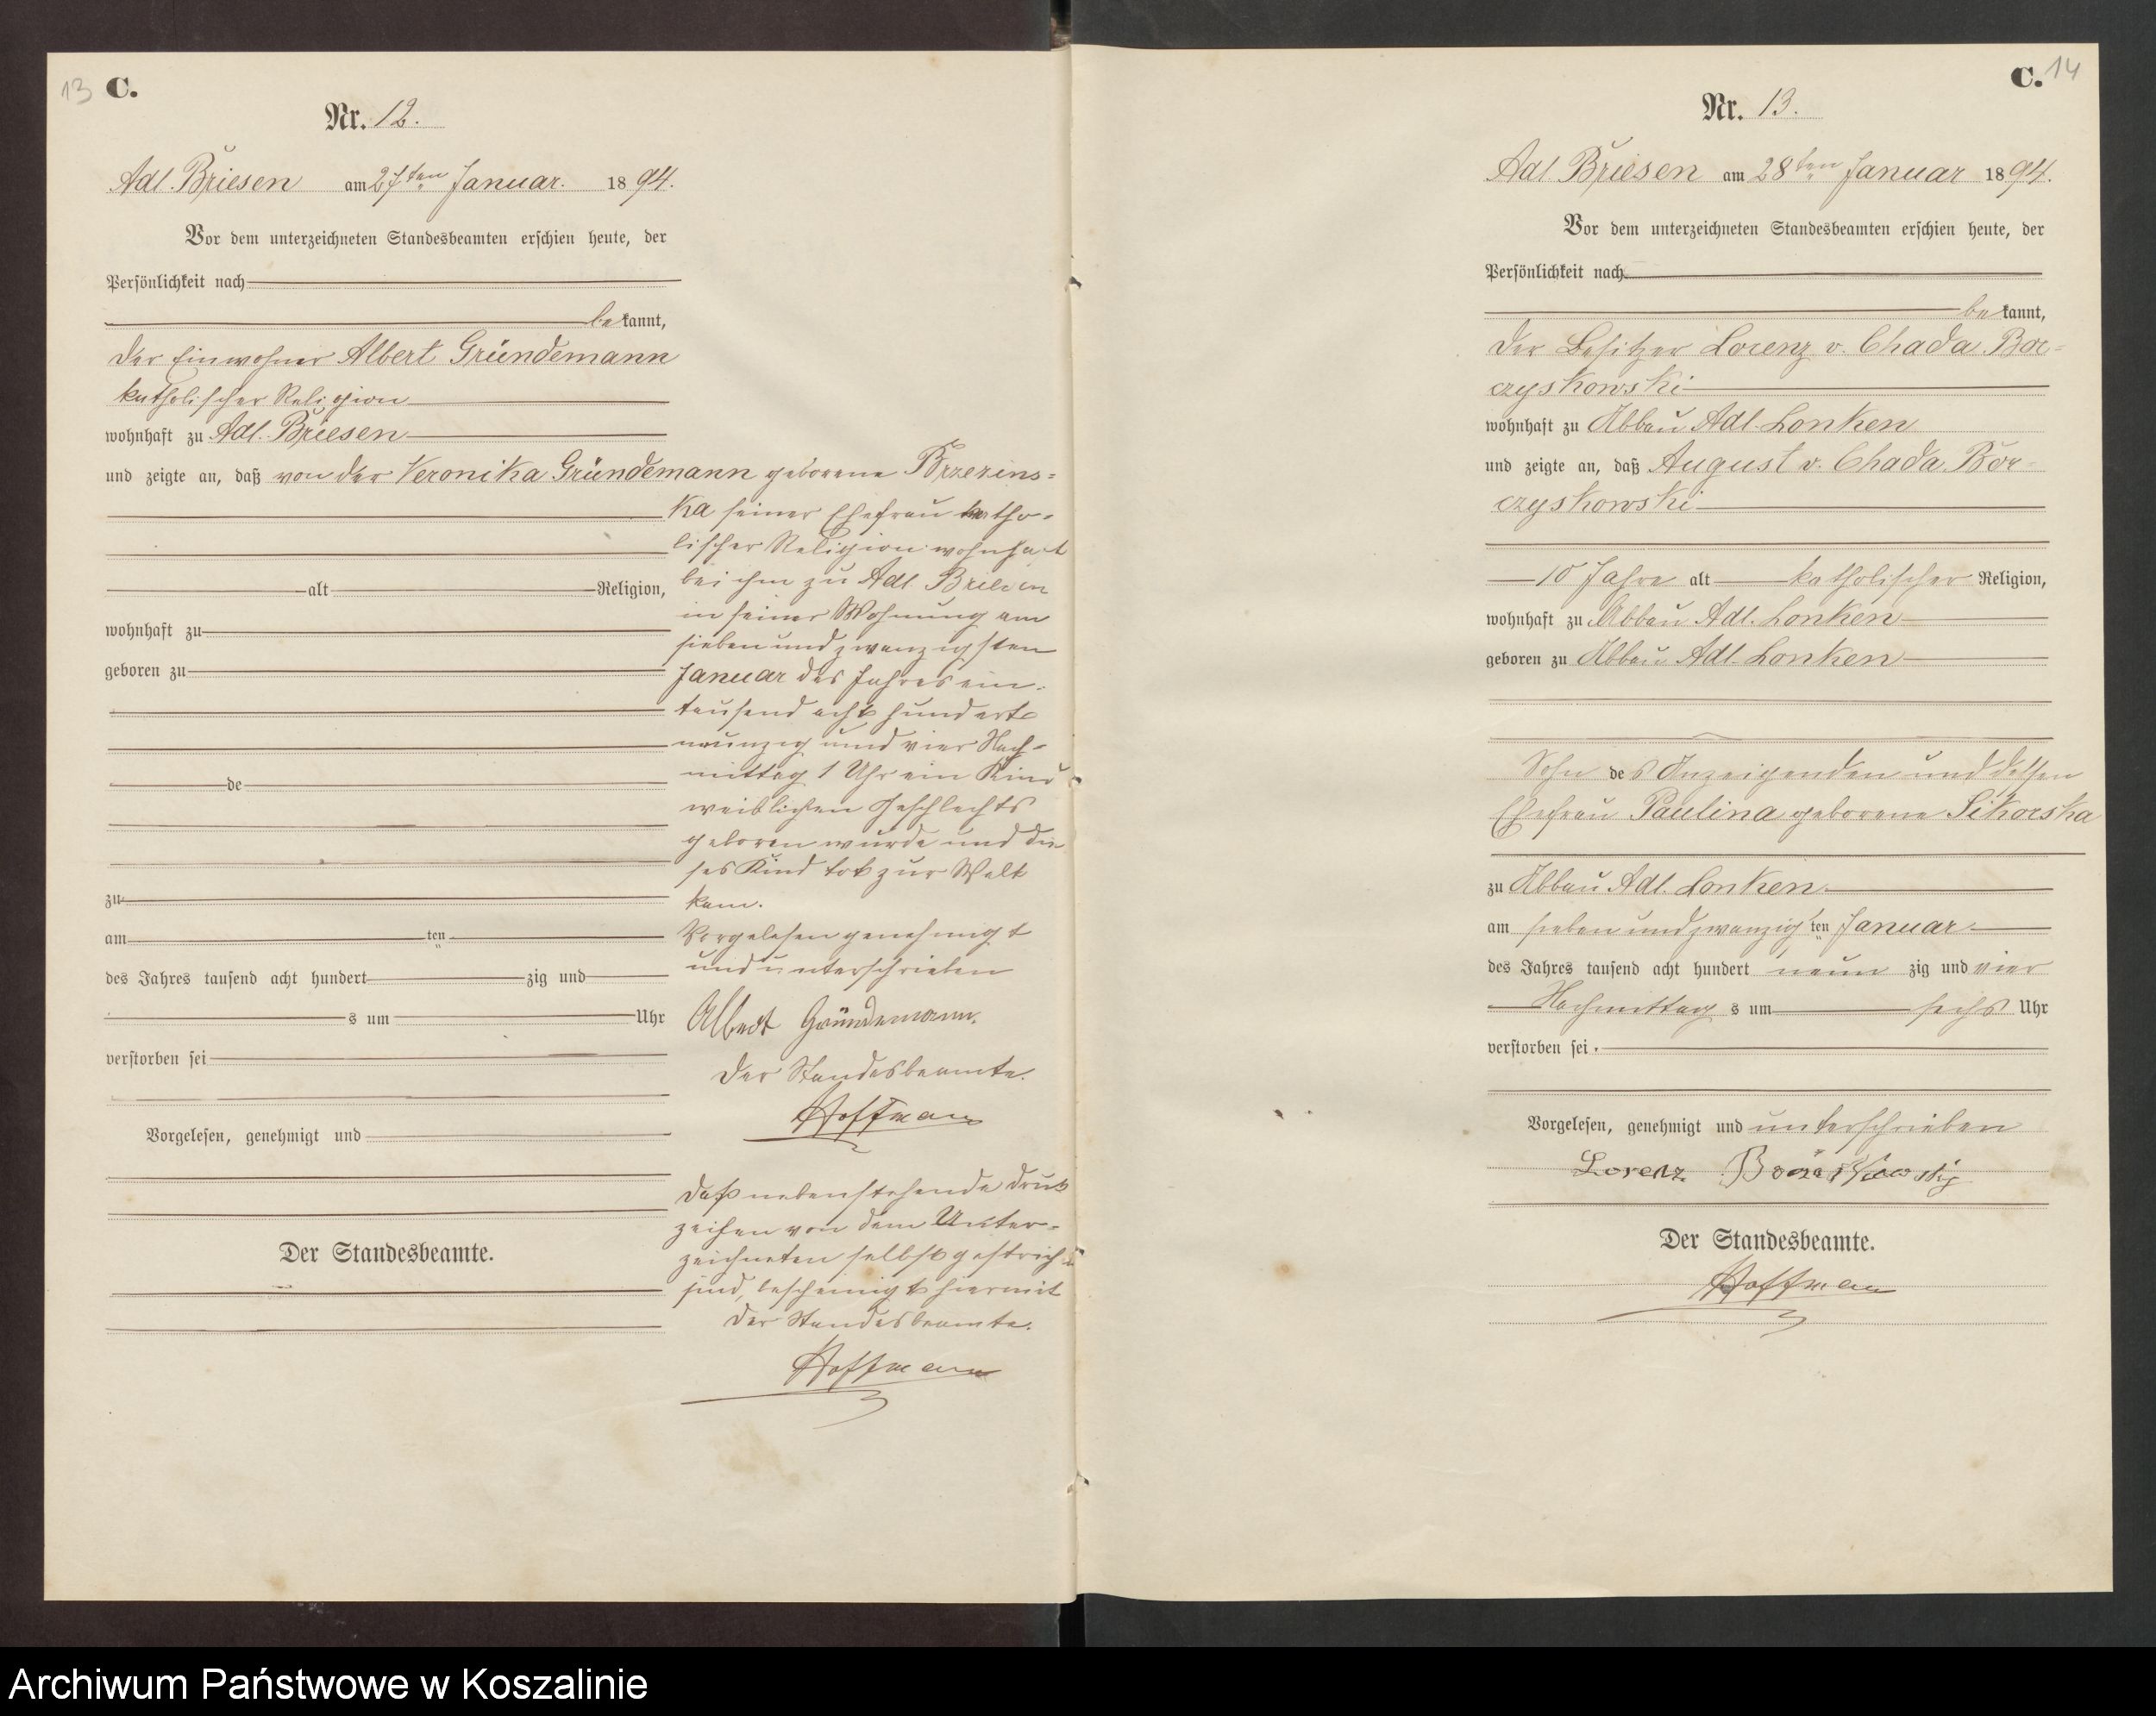 13 C.
Nr. 12.
Adl. Briesen am 27ten Januar. 1894.
Vor dem unterzeichneten Standesbeamten erschien heute, der
Persönlichkeit nach
bekannt,
der Einwohner Albert Gründemann
katholischer Religion
wohnhaft zu Adl. Briesen
und zeigte an, daß von der Veronika Gründemann geborene Brzezins=
ka seiner Ehefrau katho-
lischer Religion wohnhaft
alt Religion,
bei ihm zu Adl. Briesen
in seiner Wohnung am
wohnhaft zu
sieben und zwanzigsten
geboren zu
Januar des Jahres ein-
tausend acht hundert
neunzig und vier Nach-
mittag 1 Uhr ein Kind
de
weiblichen Geschlechts
geboren wurde und die
ses Kind tot zur Welt
zu
kam.
am ten
Vorgelesen genehmigt
des Jahres tausend acht hundert zig und
und unterschrieben
s um Uhr
Albert Gründemann.
verstorben sei
Der Standesbeamte.
Hoffmann
Vorgelesen, genehmigt und
Daß nebenstehende Druck
zeichen von dem Unter-
zeichneten selbst gestrichen
Der Standesbeamte.
sind, bescheinigt hiermit
Der Standesbeamte.
Hoffmann
C. 14
Nr. 13.
Adl Briesen am 28ten Januar 1894.
Vor dem unterzeichneten Standesbeamten erschien heute, der
Persönlichkeit nach
bekannt,
der Besitzer Lorenz v. Chada Bor=
czyskowski
wohnhaft zu Abbau Adl. Lonken
und zeigte an, daß August v. Chada Bor-
czyskowski
10 Jahre alt katholischer Religion,
wohnhaft zu Abbau Adl. Lonken
geboren zu Abbau Adl. Lonken
Sohn des Anzeigenden und dessen
Ehefrau Paulina geborene Sikorska
zu Abbau Adl. Lonken
am sieben und zwanzigten Januar
des Jahres tausend acht hundert neun zig und vier
Nachmittags um sechs Uhr
verstorben sei.
Vorgelesen, genehmigt und unterschrieben
Lorenz
Der Standesbeamte.
Hoffmann
Archiwum Państwowe w Koszalinie